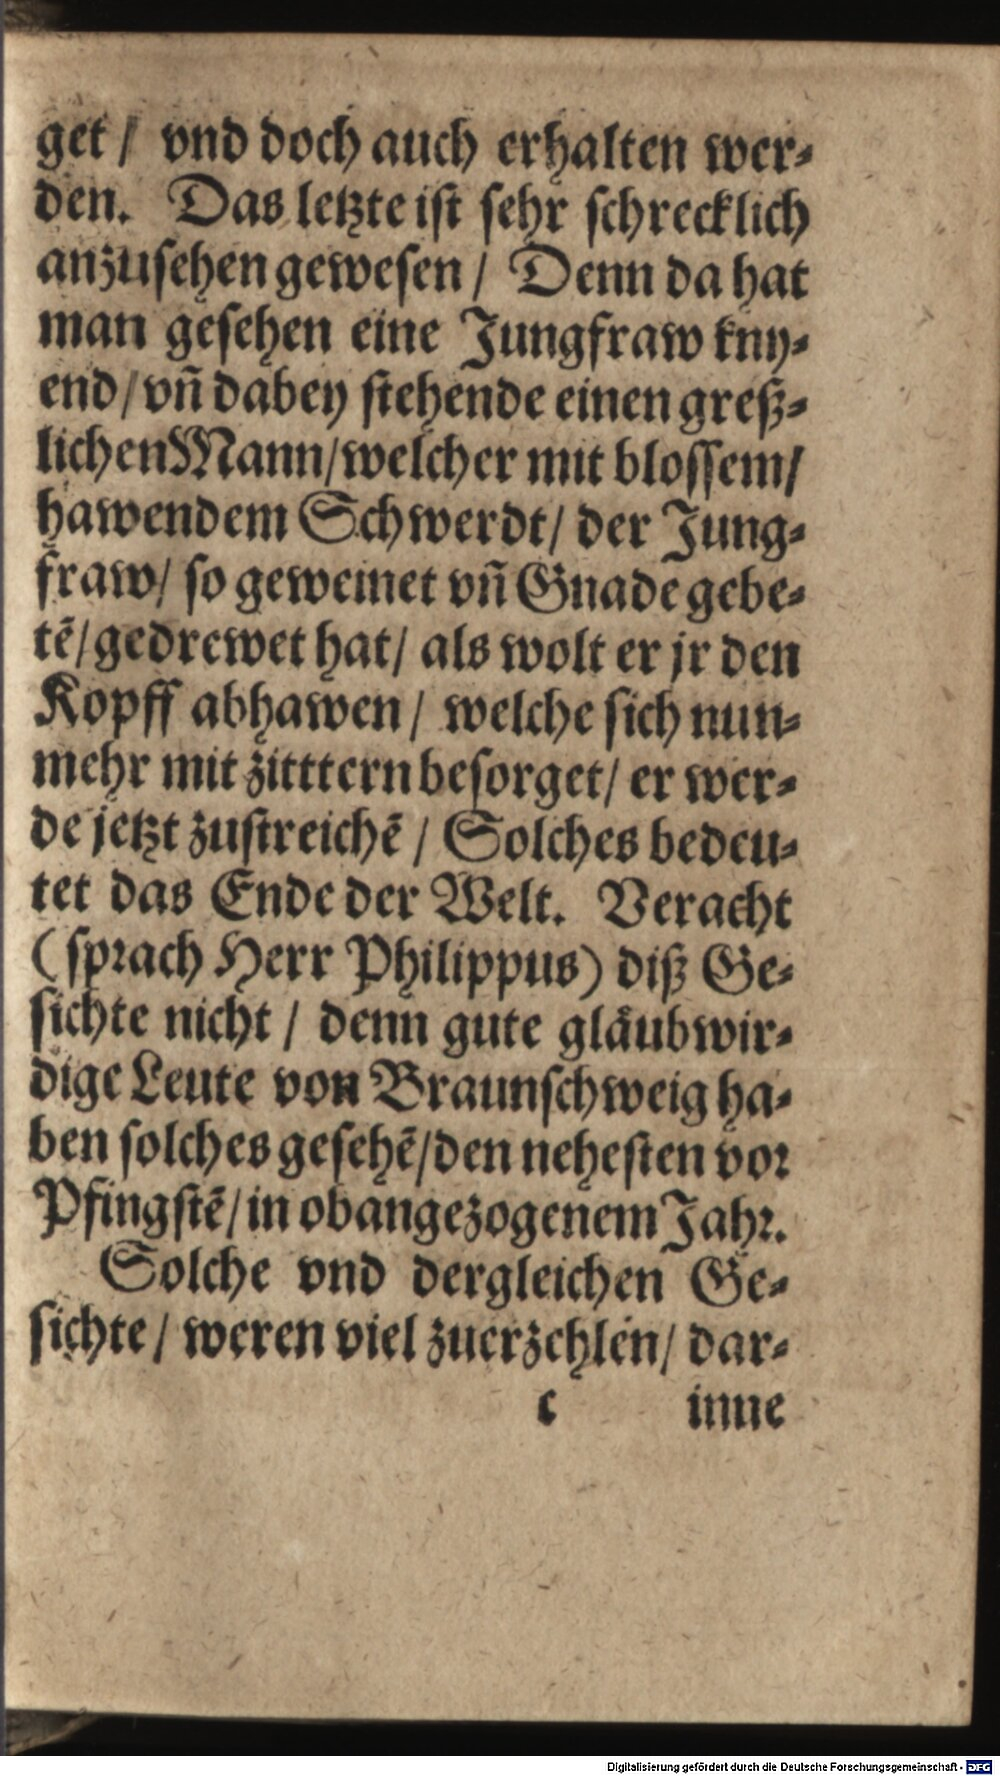 get / vnd doch auch erhalten wer⸗
den. Das letzte ist sehr schrecklich
anzusehen gewesen / Denn da hat
man gesehen eine Jungfraw kny⸗
end / vn̄ dabey stehende einen greß⸗
lichen Mann / welcher mit blossem /
hawendem Schwerdt / der Jung⸗
fraw / so geweinet vn̄ Gnade gebe⸗
tē / gedrewet hat / als wolt er jr den
Kopff abhawen / welche sich nun⸗
mehr mit zitttern besorget / er wer⸗
de jetzt zustreichē / Solches bedeu⸗
tet das Ende der Welt. Veracht
(sprach Herr Philippus) diß Ge⸗
sichte nicht / denn gute gläubwir⸗
dige Leute von Braunschweig ha⸗
ben solches gesehē / den nehesten vor
Pfingstē / in obangezogenem Jahr.
Solche vnd dergleichen Ge⸗
sichte / weren viel zuerzehlen / dar⸗
c inne
Digitalisierung gefördert durch die Deutsche Forschungsgemeinschaft - DFG